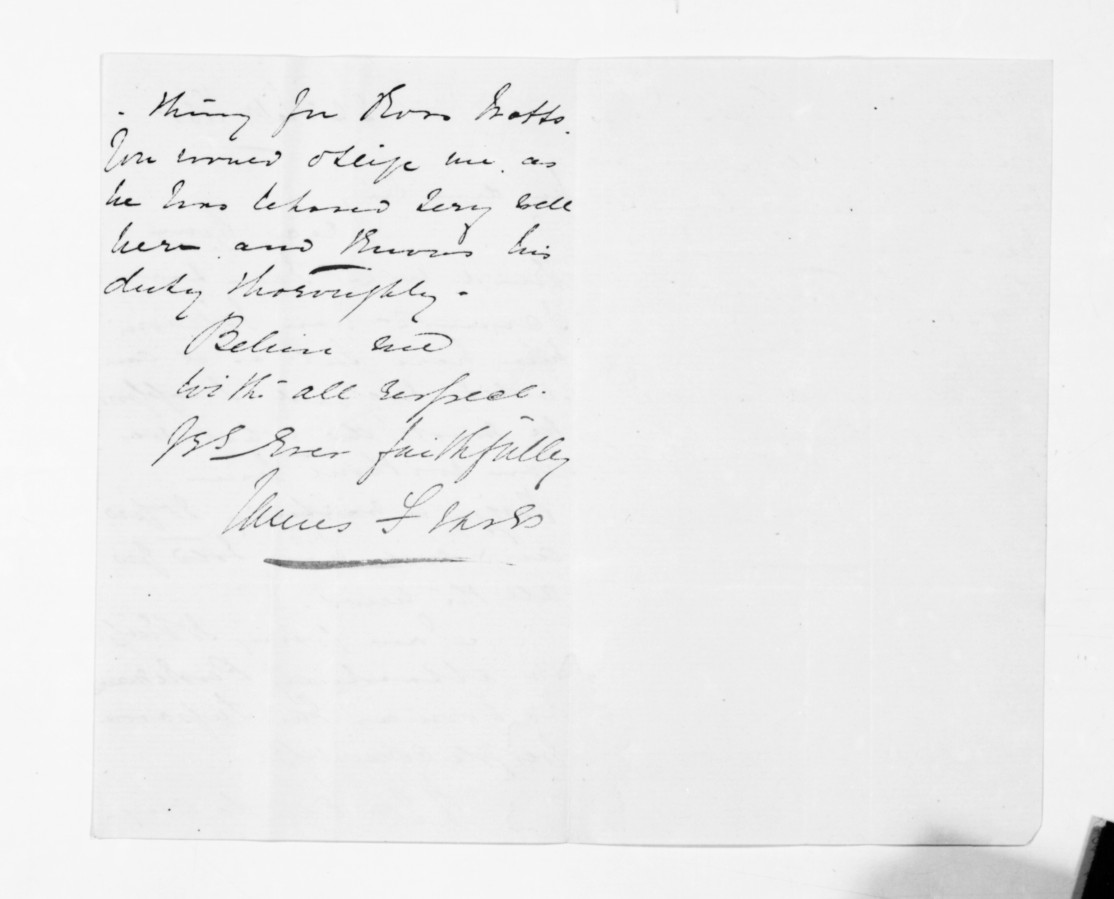 - thing for Ross Watts.
You would oblige me, as
he has behaved very well
here and knows his
duty thoroughly -
Believe me
with all respect.
Yrs Ever faithfully
James